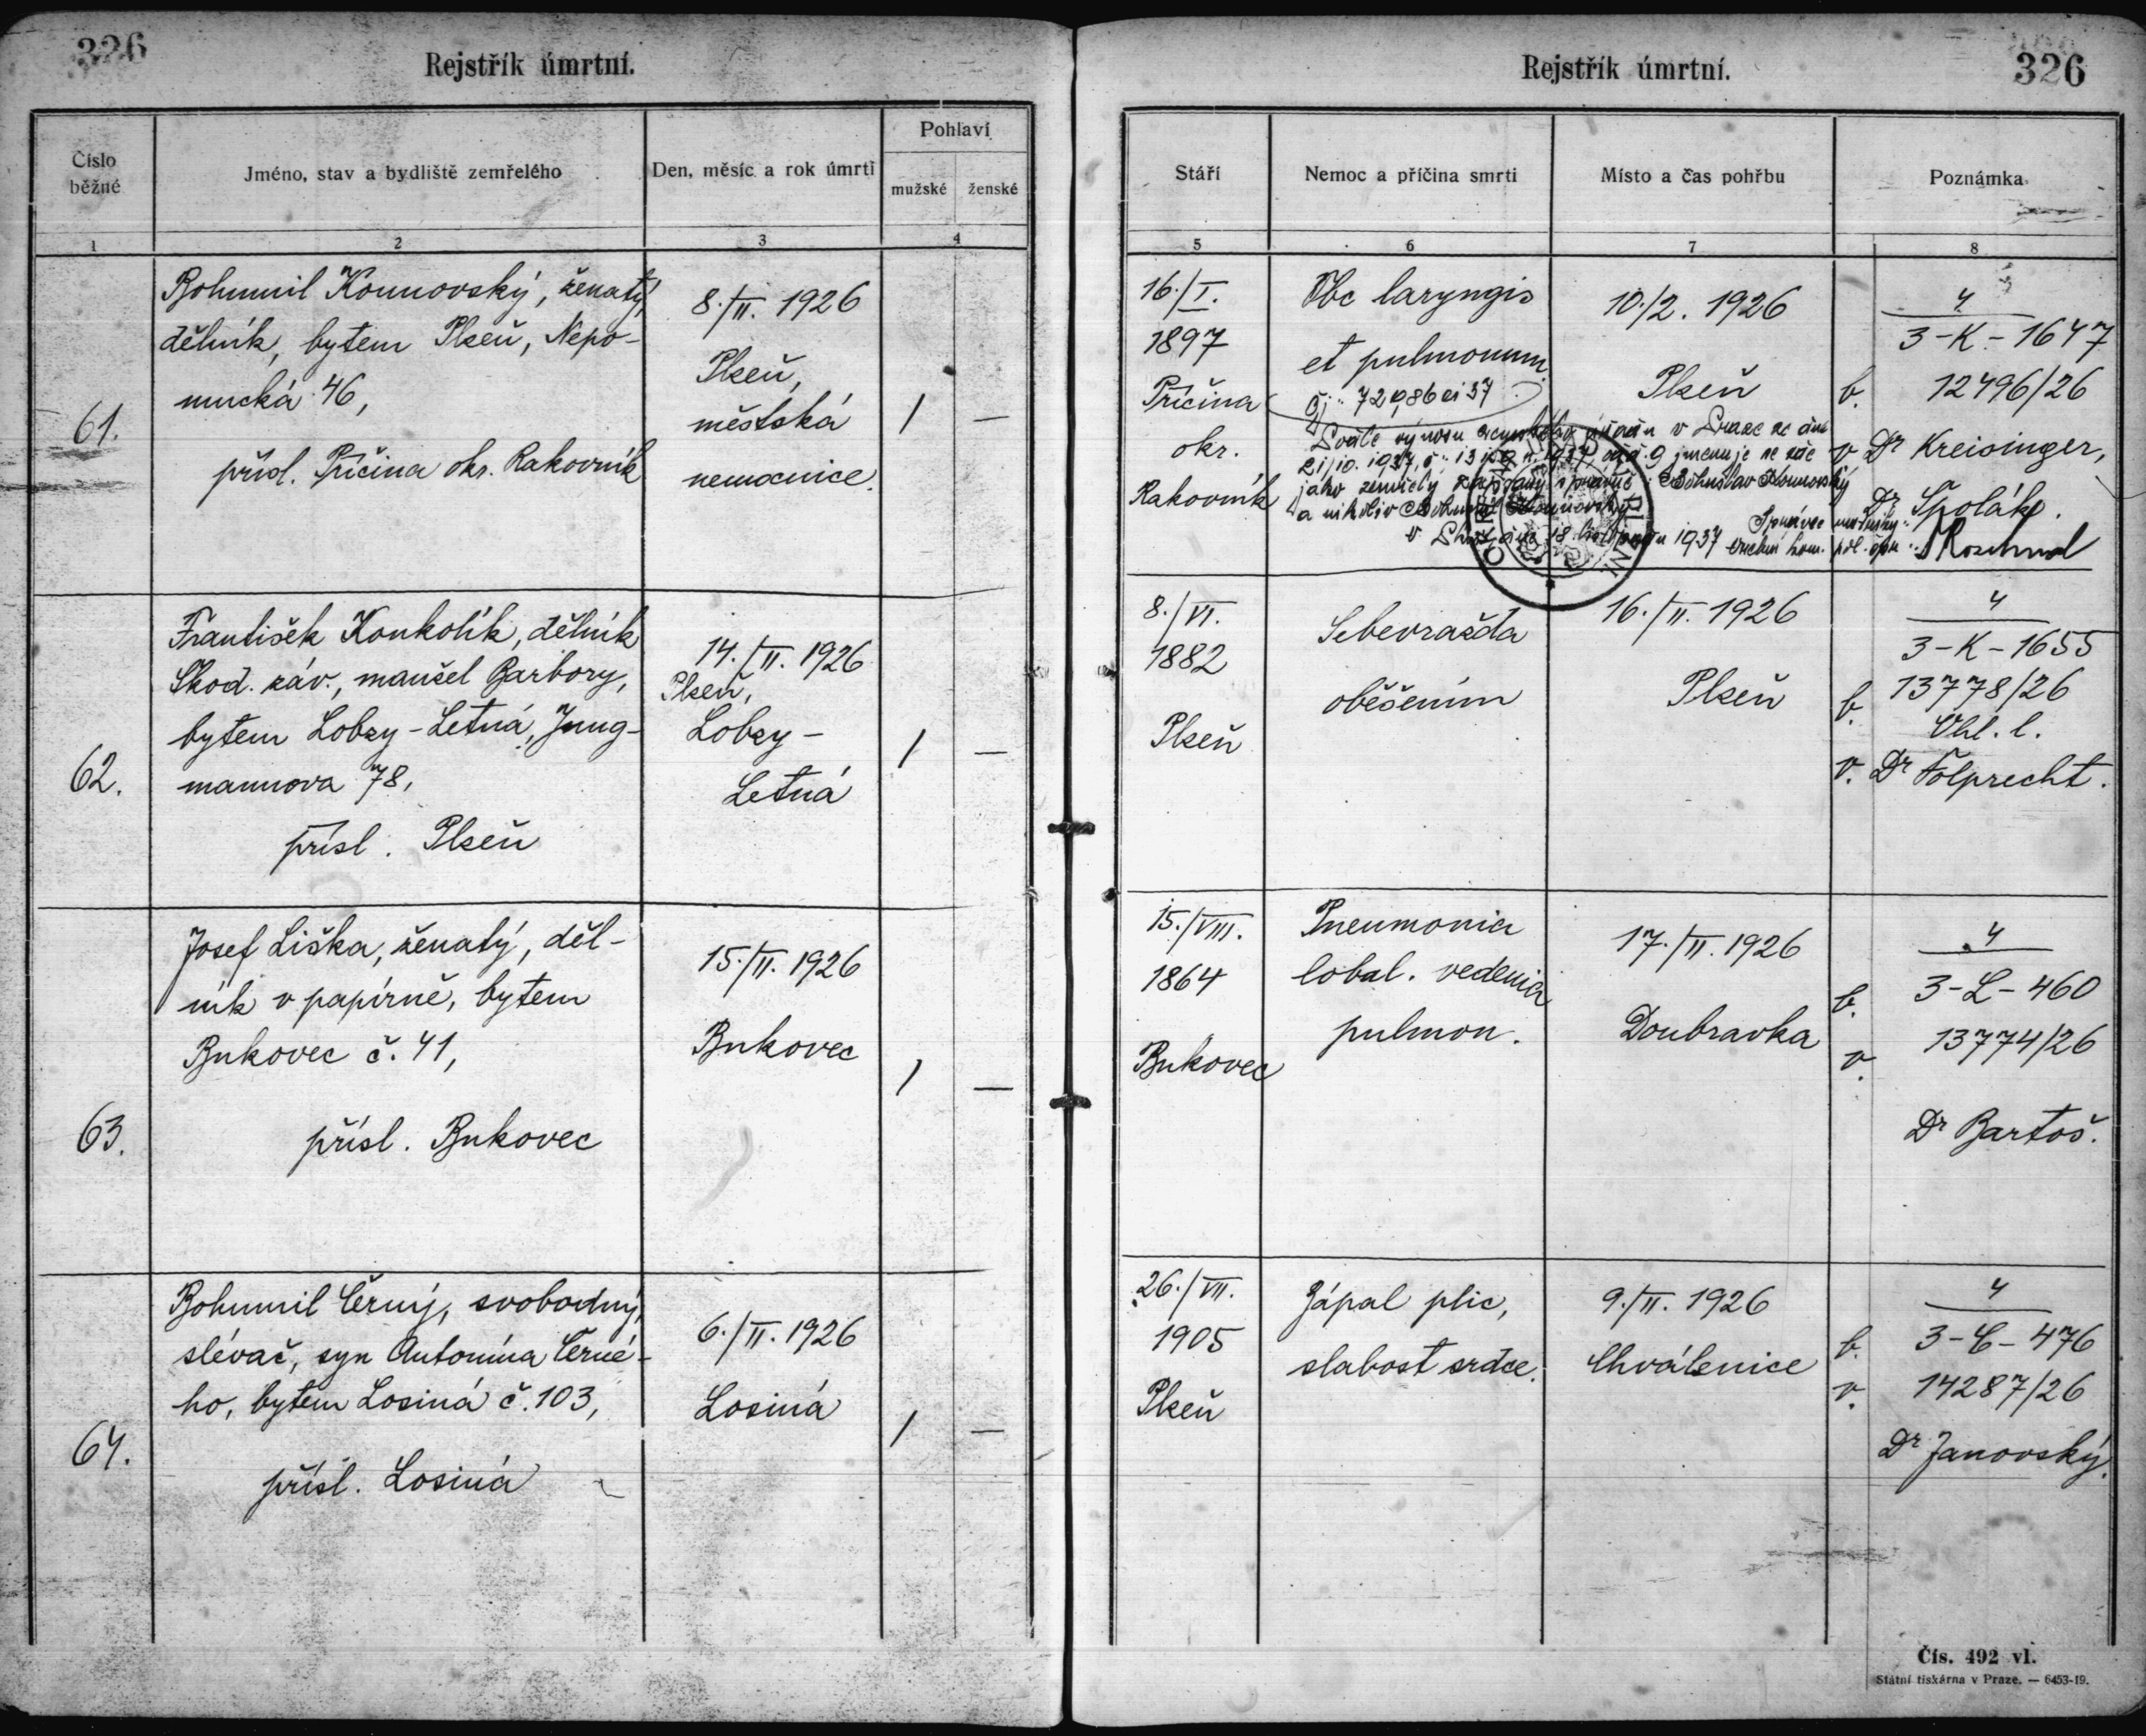 326
Rejstřík úmrtní.
Číslo
běžné
Jméno, stav a bydliště zemřelého
Den, měsíc a rok úmrtí
Pohlaví
mužské
ženské
1
2
3
4
61.
Bohumil Kounovský, ženatý,
dělník, bytem Plzeň, Nepo-
mucká 46,
přísl. Příčina okr. Rakovník
8./II. 1926
Plzeň,
městská
nemocnice.
/ —
62.
František Konkolík, dělník
Škod. záv., manžel Barbory,
bytem Lobzy-Letná, Jung-
mannova 78,
přísl. Plzeň
14./II. 1926
Plzeň,
Lobzy-
Letná
/ —
63.
Josef Liška, ženatý, děl-
ník v papírně, bytem
Bukovec č. 41,
přísl. Bukovec
15./II. 1926
Bukovec
/ —
64.
Bohumil Černý, svobodný,
slévač, syn Antonína Černé-
ho, bytem Losiná č. 103,
přísl. Losiná
6./II. 1926
Losiná
/ —
Rejstřík úmrtní.
326
Stáří
Nemoc a příčina smrti
Místo a čas pohřbu
Poznámka
5
6
7
8
16./I.
1897
Příčina
okr.
Rakovník
Tbc laryngis
et pulmonum.
10./2. 1926
Plzeň
4
3-K-1647
b. 12496/26
v Dr Kreisinger,
Dr Špolák.
Dle výnosu zemského úřadu v Praze ze dne
21/10. 1937, č. odd. 9 jmenuje se zde
jako zemřelý zapsaný správně: Bohuslav Kounovský
a nikoliv Bohumil Kounovský.
v dne 18. listopadu 1937
8./VI.
1882
Plzeň
Sebevražda
oběšením
16./II. 1926
Plzeň
4
3-K-1655
b. 13778/26
Ohl. l.
v. Dr Folprecht.
15./VIII.
1864
Bukovec
Pneumonia
lobal. vedenia
pulmon.
17./II. 1926
Doubravka
4
b. 3-L-460
v. 13774/26
Dr Bartoš.
26./VII.
1905
Plzeň
Zápal plic,
slabost srdce.
9./II. 1926
Chválenice
4
b. 3-C-476
v. 14287/26
Dr Janovský.
Čís. 492 vl.
Státní tiskárna v Praze. — 6453-19.